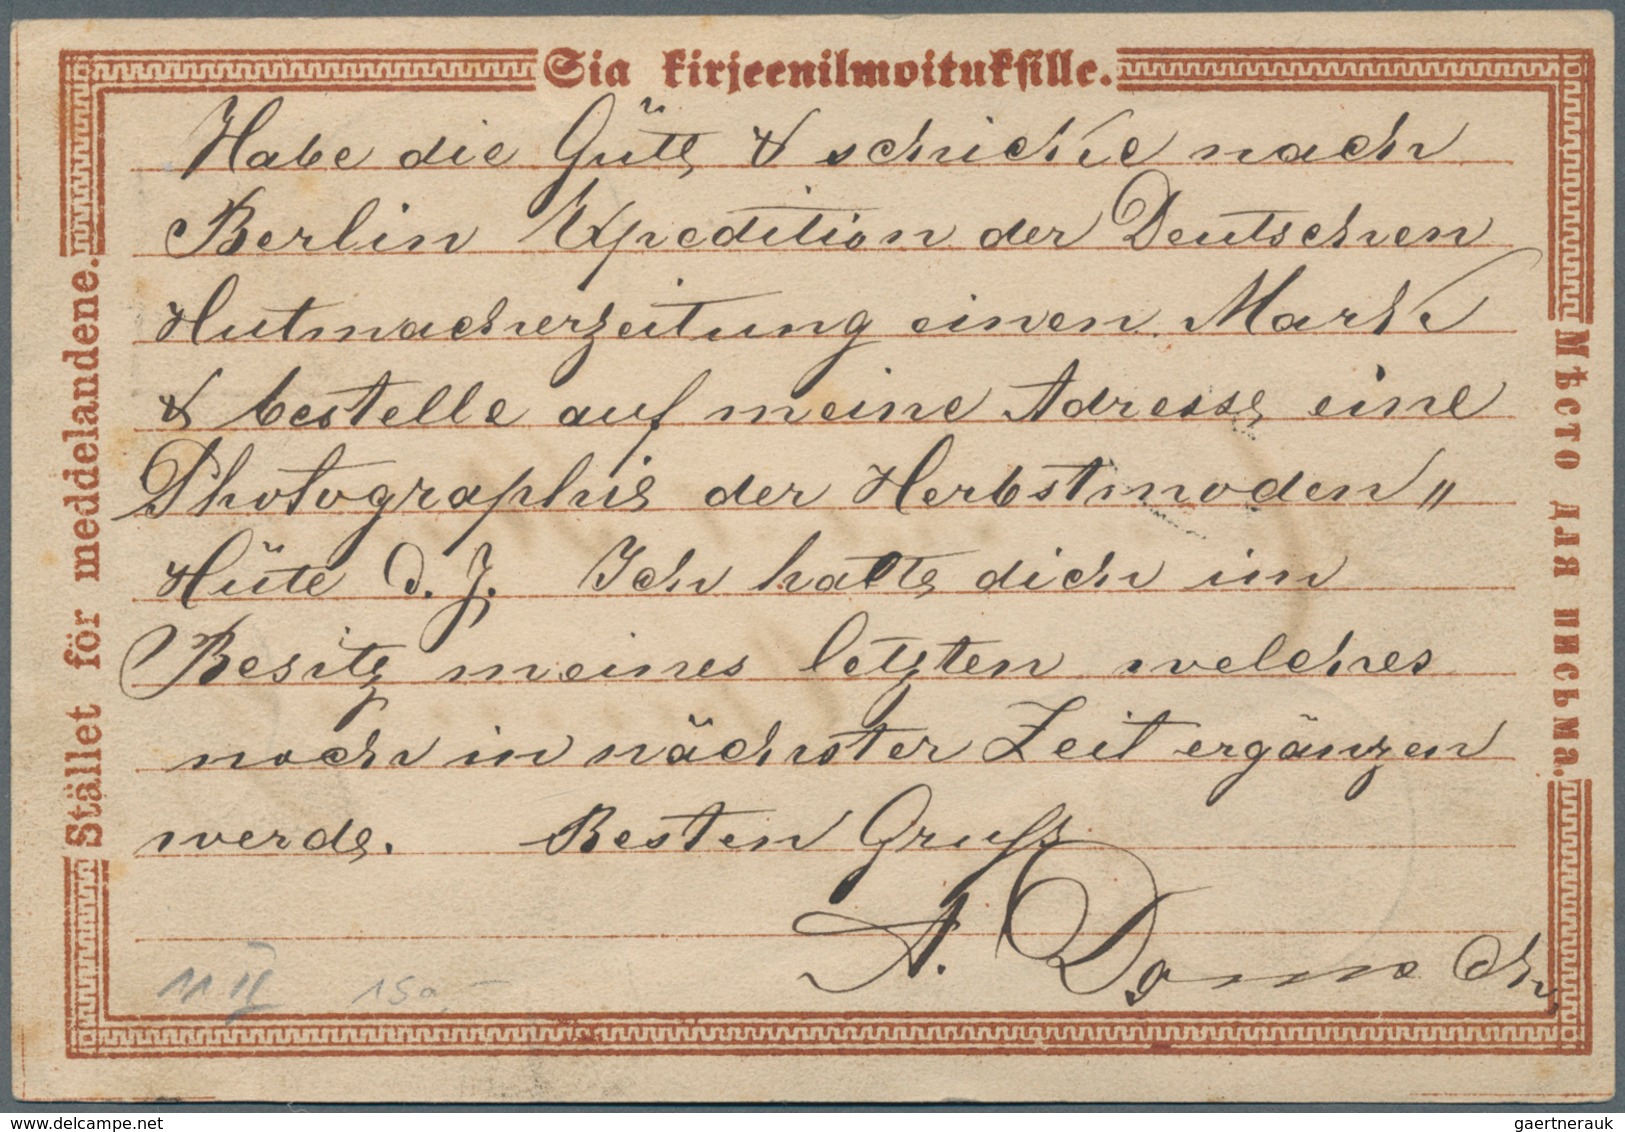 Sia kirjeenilmoituksille.
Stället för meddelandene.
Мѣсто для письма.
Habe die Güte & schicke nach
Berlin Expedition der Deutschen
Hutmacherzeitung einen Mark
& bestelle auf meine Adresse eine
Photographie der Herbstmoden "
Hüte d. J. Ich hatte dich im
Besitz meines letzten welches
noch in nächster Zeit ergänzen
werde. Besten Gruss
A.
11 II 150,-
gaertnerauk
www.delcampe.net